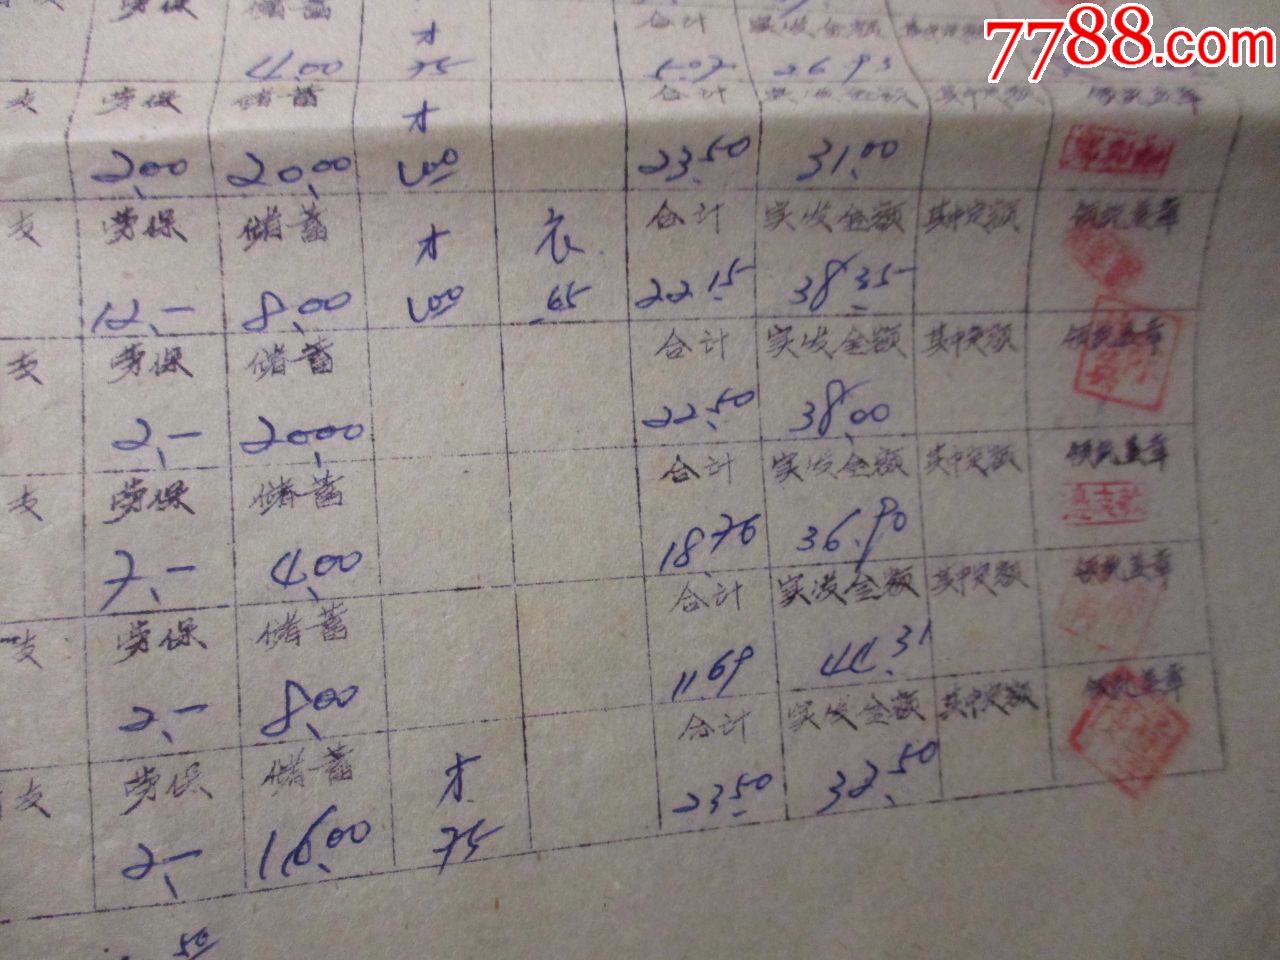 7788.com
劳保 储蓄 才 合计 实发金额
4.00 75 5.07 26.93
支 劳保 储蓄 才 合计 实发金额 其中定额 领款盖章
2.00 20.00 23.50 31.00
支 劳保 储蓄 才 衣 合计 实发金额 其中定额 领款盖章
12.- 8.00 65 22.15 38.35
支 劳保 储蓄 合计 实发金额 其中定额 领款盖章
2.- 20.00 22.50 38.00
支 劳保 储蓄 合计 实发金额 其中定额 领款盖章
7.- 4.00 18.76 36.90
支 劳保 储蓄 合计 实发金额 其中定额 领款盖章
2.- 8.00 11.69 44.31
支 劳保 储蓄 才 合计 实发金额 其中定额 领款盖章
2.- 16.00 75 23.50 32.50
50